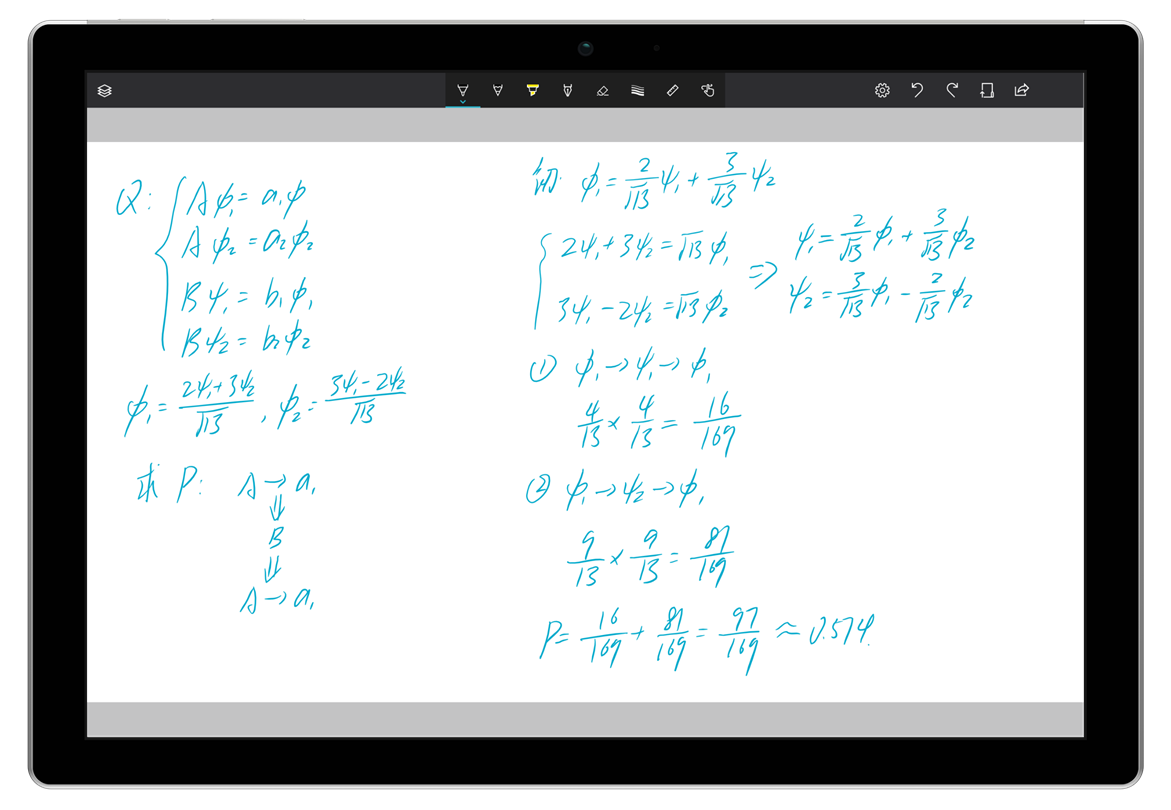 Q: { Aϕ₁ = a₁ϕ
Aϕ₂ = a₂ϕ₂
Bψ₁ = b₁ϕ₁
Bψ₂ = b₂ϕ₂
ϕ₁ = (2ψ₁+3ψ₂)/√13 , ϕ₂ = (3ψ₁-2ψ₂)/√13
求 P: A → a₁
⇓
B
⇓
A → a₁
初: ϕ₁ = 2/√13 ψ₁ + 3/√13 ψ₂
{ 2ψ₁+3ψ₂ = √13 ϕ₁
3ψ₁-2ψ₂ = √13 ϕ₂
⇒ ψ₁ = 2/√13 ϕ₁ + 3/√13 ϕ₂
ψ₂ = 3/√13 ϕ₁ - 2/√13 ϕ₂
① ϕ₁ → ψ₁ → ϕ₁
4/13 × 4/13 = 16/169
② ϕ₁ → ψ₂ → ϕ₁
9/13 × 9/13 = 81/169
P = 16/169 + 81/169 = 97/169 ≈ 0.574.